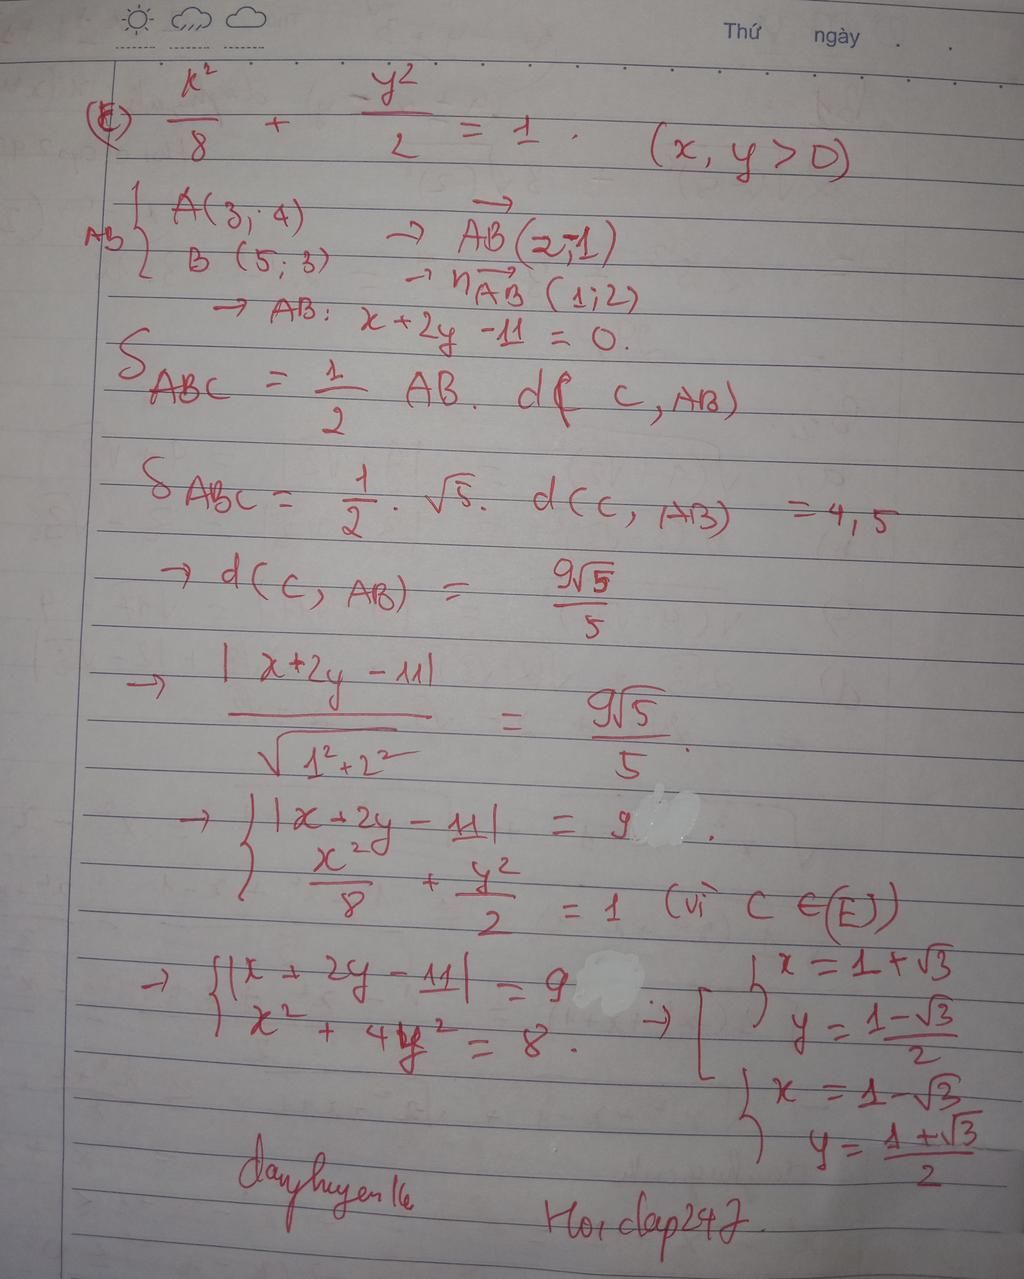 Thứ ngày . .
(E) x²/8 + y²/2 = 1 . (x, y > 0)
AB { A(3; 4) → AB→(2;-1)
B (5; 3) → n→AB (1;2)
→ AB: x + 2y - 11 = 0.
S ABC = 1/2 AB. d( C, AB)
S ABC = 1/2 . √5. d(C, AB) = 4,5
→ d(C, AB) = 9√5/5
→ |x+2y - 11|/√1²+2² = 9√5/5 .
→ { |x + 2y - 11| = 9 .
x²/8 + y²/2 = 1 (vì C ∈ (E))
→ { |x + 2y - 11| = 9
x² + 4y² = 8 .
→ [ { x = 1 + √3
y = 1 - √3/2
{ x = 1 - √3
y = 1 + √3/2
Hoidap247.